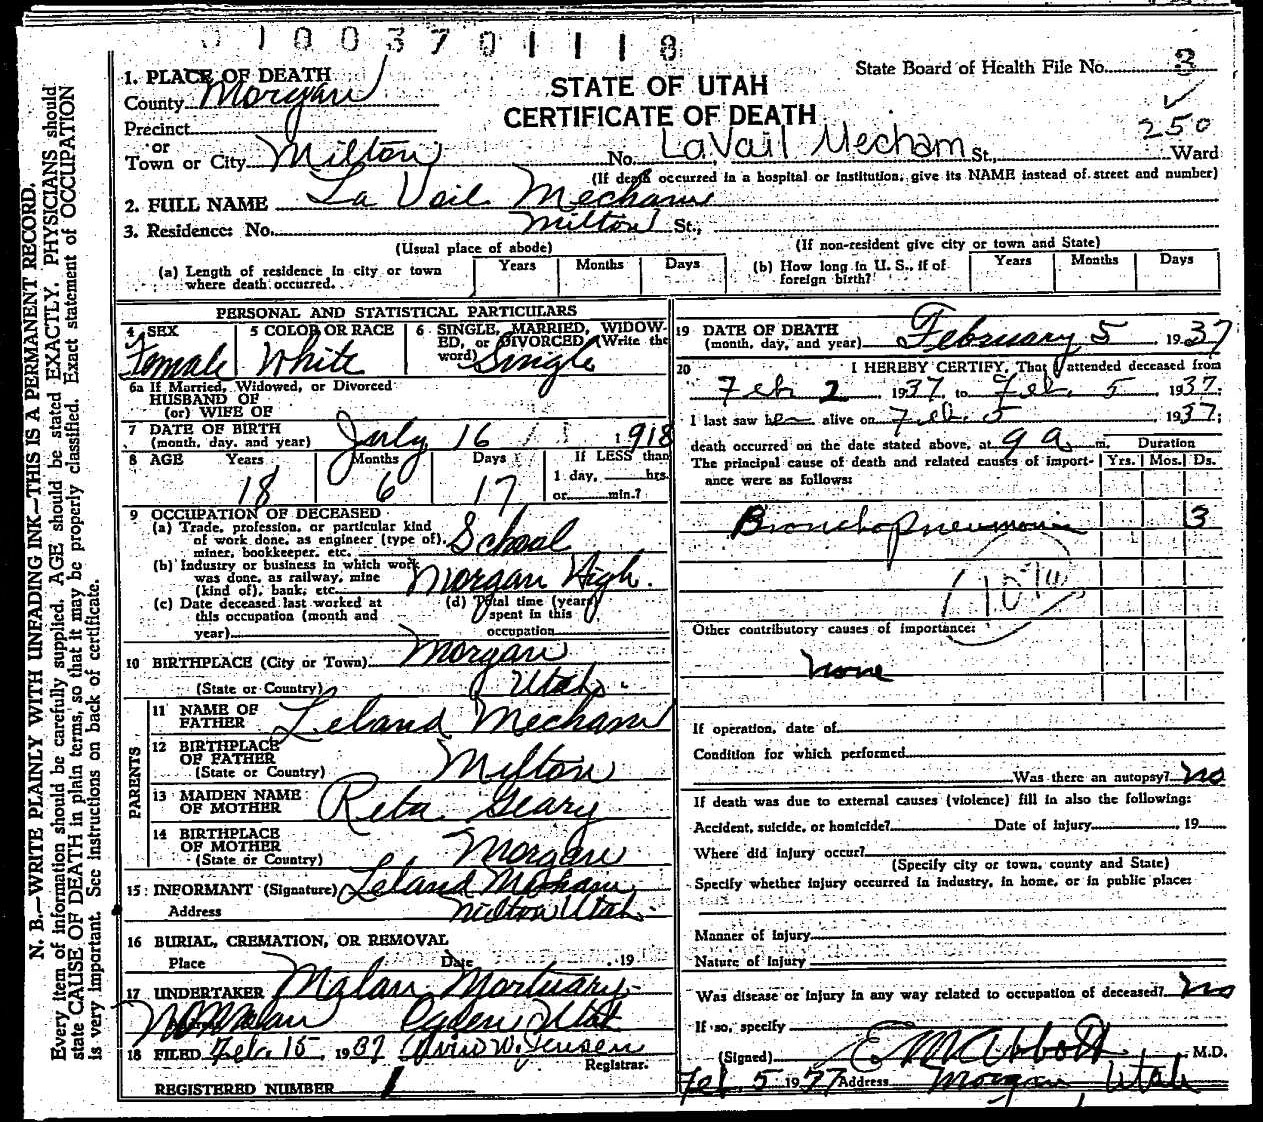 0 1 0 0 3 7 0 1 1 1 8
State Board of Health File No. 3
STATE OF UTAH
CERTIFICATE OF DEATH
250
1. PLACE OF DEATH
County Morgan
Precinct
or
Town or City Milton No. LaVail Mecham St., Ward
(If death occurred in a hospital or institution, give its NAME instead of street and number)
2. FULL NAME La Vail Mecham
3. Residence: No. Milton St.,
(Usual place of abode) (If non-resident give city or town and State)
(a) Length of residence in city or town where death occurred. Years Months Days
(b) How long in U. S., if of foreign birth? Years Months Days
PERSONAL AND STATISTICAL PARTICULARS
4 SEX Female
5 COLOR OR RACE White
6 SINGLE, MARRIED, WIDOWED, or DIVORCED (Write the word) Single
6a If Married, Widowed, or Divorced
HUSBAND OF
(or) WIFE OF
7 DATE OF BIRTH
(month, day, and year) July 16 1918
8 AGE Years Months Days If LESS than
1 day, hrs.
or min.?
18 6 17
9 OCCUPATION OF DECEASED
(a) Trade, profession, or particular kind
of work done, as engineer (type of),
miner, bookkeeper, etc. School
(b) Industry or business in which work
was done, as railway, mine
(kind of), bank, etc. Morgan High.
(c) Date deceased last worked at
this occupation (month and
year)
(d) Total time (years)
spent in this
occupation
10 BIRTHPLACE (City or Town) Morgan
(State or Country) Utah.
PARENTS
11 NAME OF
FATHER Leland Mecham
12 BIRTHPLACE
OF FATHER
(State or Country) Milton
13 MAIDEN NAME
OF MOTHER Reta Geary
14 BIRTHPLACE
OF MOTHER
(State or Country) Morgan
15 INFORMANT (Signature) Leland Mecham
Address Milton Utah.
16 BURIAL, CREMATION, OR REMOVAL
Place Date 19
17 UNDERTAKER Malan Mortuary
Malan Ogden, Utah
18 FILED Feb. 15 1937 W. Jensen
Registrar.
REGISTERED NUMBER 1
19 DATE OF DEATH
(month, day, and year) February 5, 1937
20 I HEREBY CERTIFY, That I attended deceased from
Feb 2, 1937, to Feb. 5, 1937;
I last saw her alive on Feb. 5, 1937;
death occurred on the date stated above, at 9 a. m. Duration
The principal cause of death and related causes of importance were as follows: Yrs. Mos. Ds.
Bronchopneumonia 3
Other contributory causes of importance:
none
If operation, date of
Condition for which performed
Was there an autopsy? no
If death was due to external causes (violence) fill in also the following:
Accident, suicide, or homicide? Date of injury , 19
Where did injury occur?
(Specify city or town, county and State)
Specify whether injury occurred in industry, in home, or in public place:
Manner of Injury
Nature of Injury
Was disease or injury in any way related to occupation of deceased? no
If so, specify
(Signed) E M Abbott M.D.
Feb. 5 1937 Address Morgan, Utah
N. B.—WRITE PLAINLY WITH UNFADING INK—THIS IS A PERMANENT RECORD.
Every item of information should be carefully supplied. AGE should be stated EXACTLY. PHYSICIANS should
state CAUSE OF DEATH in plain terms, so that it may be properly classified. Exact statement of OCCUPATION
is very important. See instructions on back of certificate.